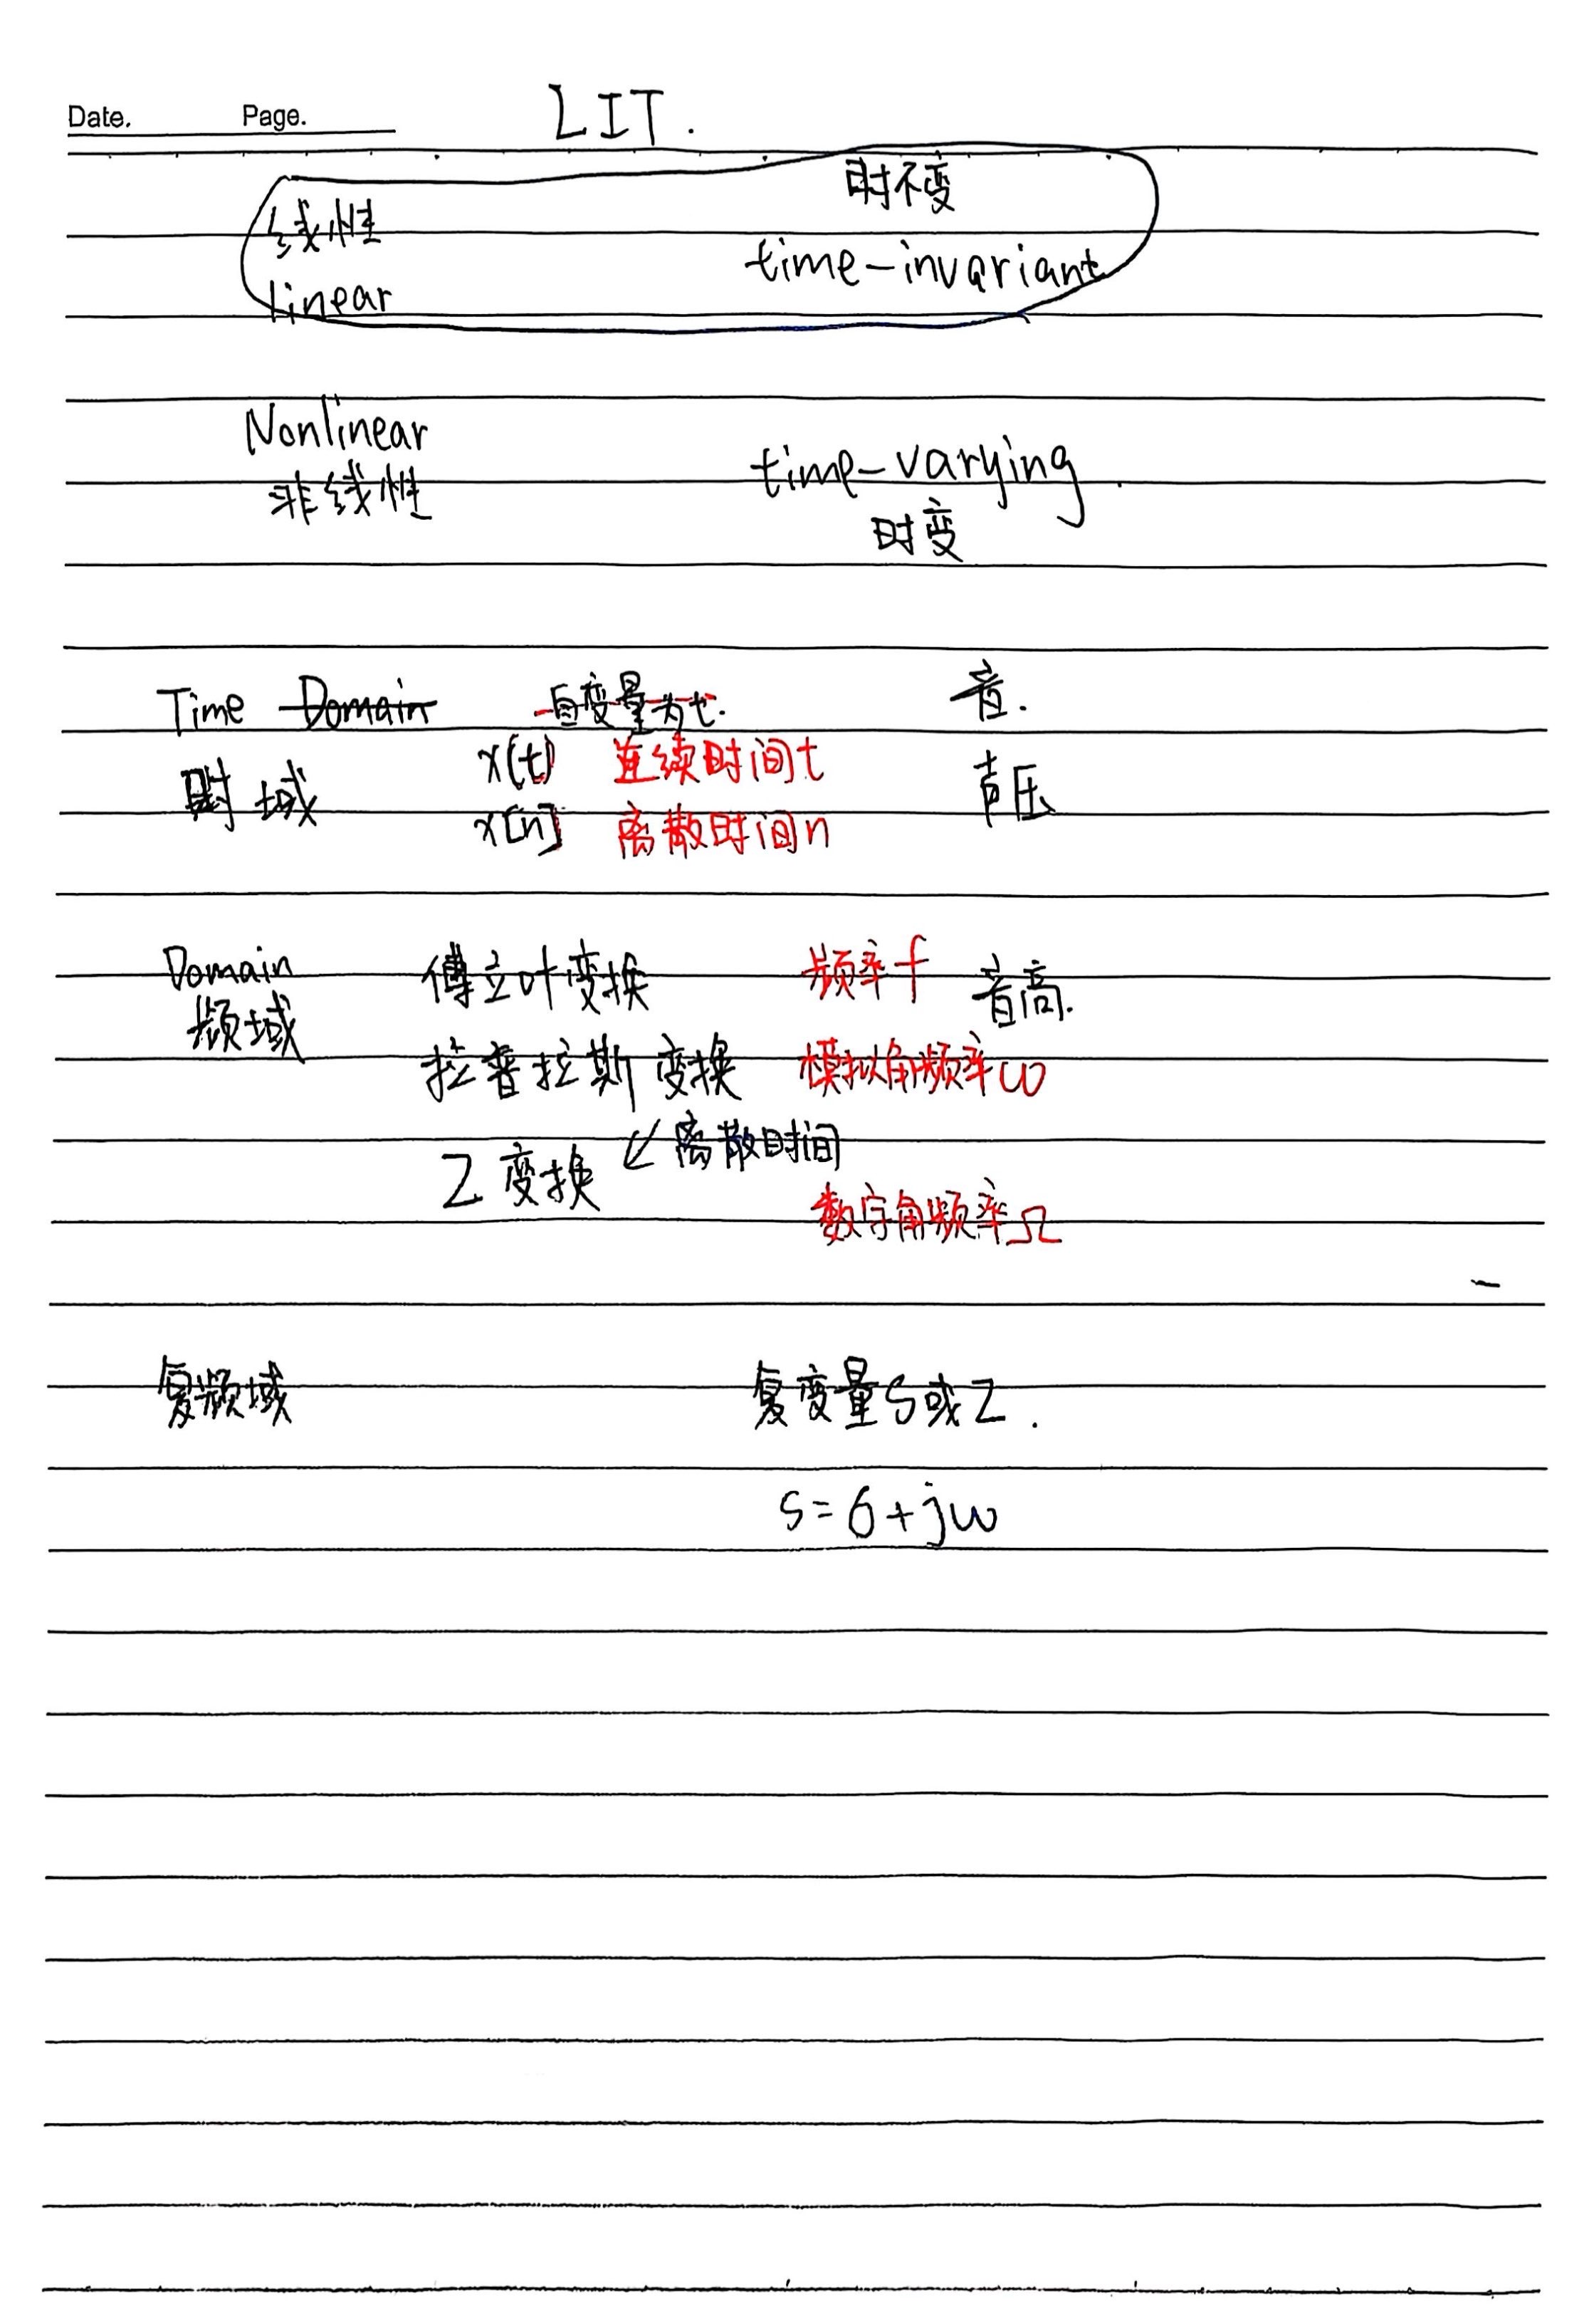 Date. Page. LIT.
时不变
线性
time-invariant
linear
Nonlinear
time-varying
非线性
时变
Time Domain 自变量为t. 音.
时域 x(t) 连续时间t 声压
x[n] 离散时间n
Domain 傅立叶变换 频率f 音高.
频域
拉普拉斯变换 模拟角频率ω
Z变换 ↙ 离散时间
数字角频率Ω
复频域 复变量S或Z.
S=6+jω